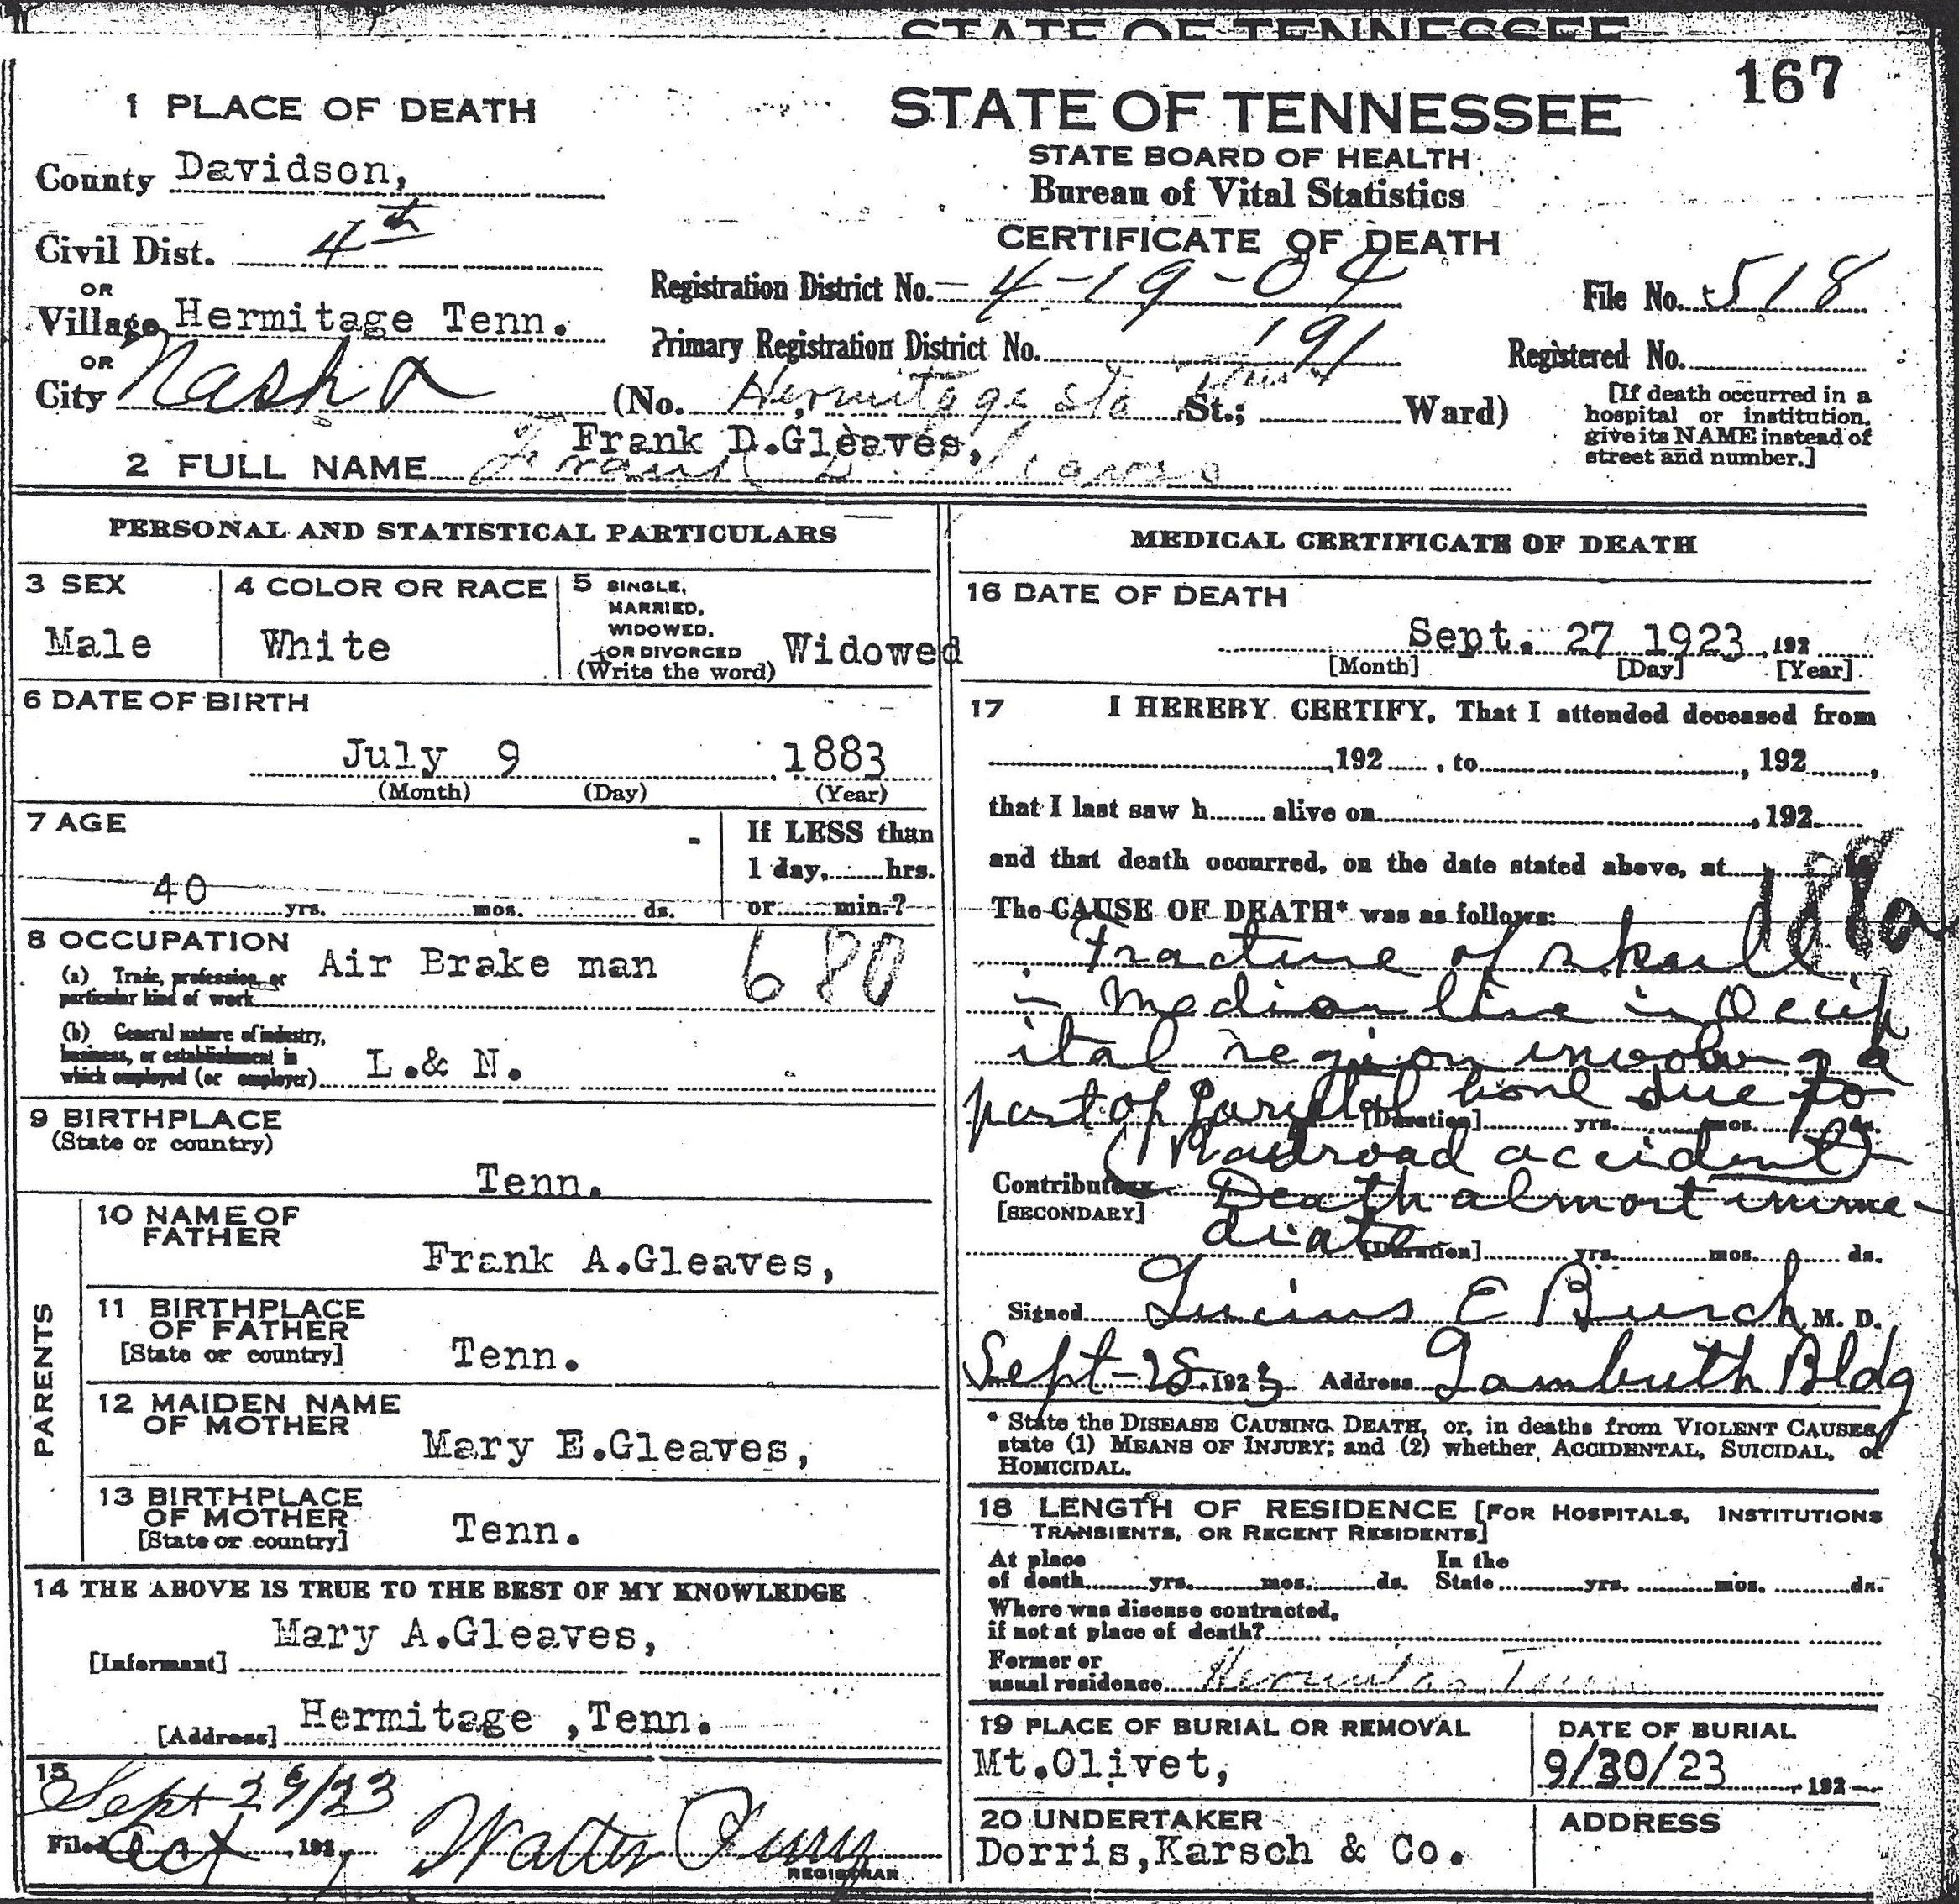 STATE OF TENNESSEE
167
1 PLACE OF DEATH
County Davidson,
Civil Dist. 4th
OR
Village Hermitage Tenn.
OR
City Nash
STATE OF TENNESSEE
STATE BOARD OF HEALTH
Bureau of Vital Statistics
CERTIFICATE OF DEATH
Registration District No. 4-19-04
File No. 518
Primary Registration District No. 191
Registered No.
(No. Hermitage Sta St.; Ward)
[If death occurred in a
hospital or institution,
give its NAME instead of
street and number.]
Frank D.Gleaves,
2 FULL NAME Frank D. Gleaves
PERSONAL AND STATISTICAL PARTICULARS
3 SEX
Male
4 COLOR OR RACE
White
5 SINGLE,
MARRIED,
WIDOWED,
OR DIVORCED
(Write the word) Widowed
6 DATE OF BIRTH
July 9 1883
(Month) (Day) (Year)
7 AGE
40 yrs. mos. ds.
If LESS than
1 day, hrs.
or min.?
8 OCCUPATION
(a) Trade, profession, or
particular kind of work Air Brake man 680
(b) General nature of industry,
business, or establishment in
which employed (or employer) L.& N.
9 BIRTHPLACE
(State or country)
Tenn.
PARENTS
10 NAME OF
FATHER
Frank A.Gleaves,
11 BIRTHPLACE
OF FATHER
[State or country] Tenn.
12 MAIDEN NAME
OF MOTHER
Mary E.Gleaves,
13 BIRTHPLACE
OF MOTHER
[State or country] Tenn.
14 THE ABOVE IS TRUE TO THE BEST OF MY KNOWLEDGE
Mary A.Gleaves,
[Informant]
[Address] Hermitage ,Tenn.
15
Sept 29/23
Filed Oct , 192
Walter
REGISTRAR
MEDICAL CERTIFICATE OF DEATH
16 DATE OF DEATH
Sept. 27 1923 , 192
[Month] [Day] [Year]
17 I HEREBY CERTIFY, That I attended deceased from
, 192 , to , 192 ,
that I last saw h alive on , 192
and that death occurred, on the date stated above, at
The CAUSE OF DEATH* was as follows:
Fracture of skull
in Median line in Occip
ital region involving a
part of parietal bone due to
[Duration] yrs. mos. ds.
Railroad accident
Contributory Death almost imme-
[SECONDARY]
diate
[Duration] yrs. mos. ds.
Signed Lucius E Burch M. D.
Sept-28, 1923 Address Lambuth Bldg
* State the DISEASE CAUSING DEATH, or, in deaths from VIOLENT CAUSES,
state (1) MEANS OF INJURY; and (2) whether ACCIDENTAL, SUICIDAL, or
HOMICIDAL.
18 LENGTH OF RESIDENCE [FOR HOSPITALS, INSTITUTIONS
TRANSIENTS, OR RECENT RESIDENTS]
At place
of death yrs. mos. ds.
In the
State yrs. mos. ds.
Where was disease contracted,
if not at place of death?
Former or
usual residence Hermitage Tenn
19 PLACE OF BURIAL OR REMOVAL
Mt.Olivet,
DATE OF BURIAL
9/30/23 , 192
20 UNDERTAKER
Dorris,Karsch & Co.
ADDRESS